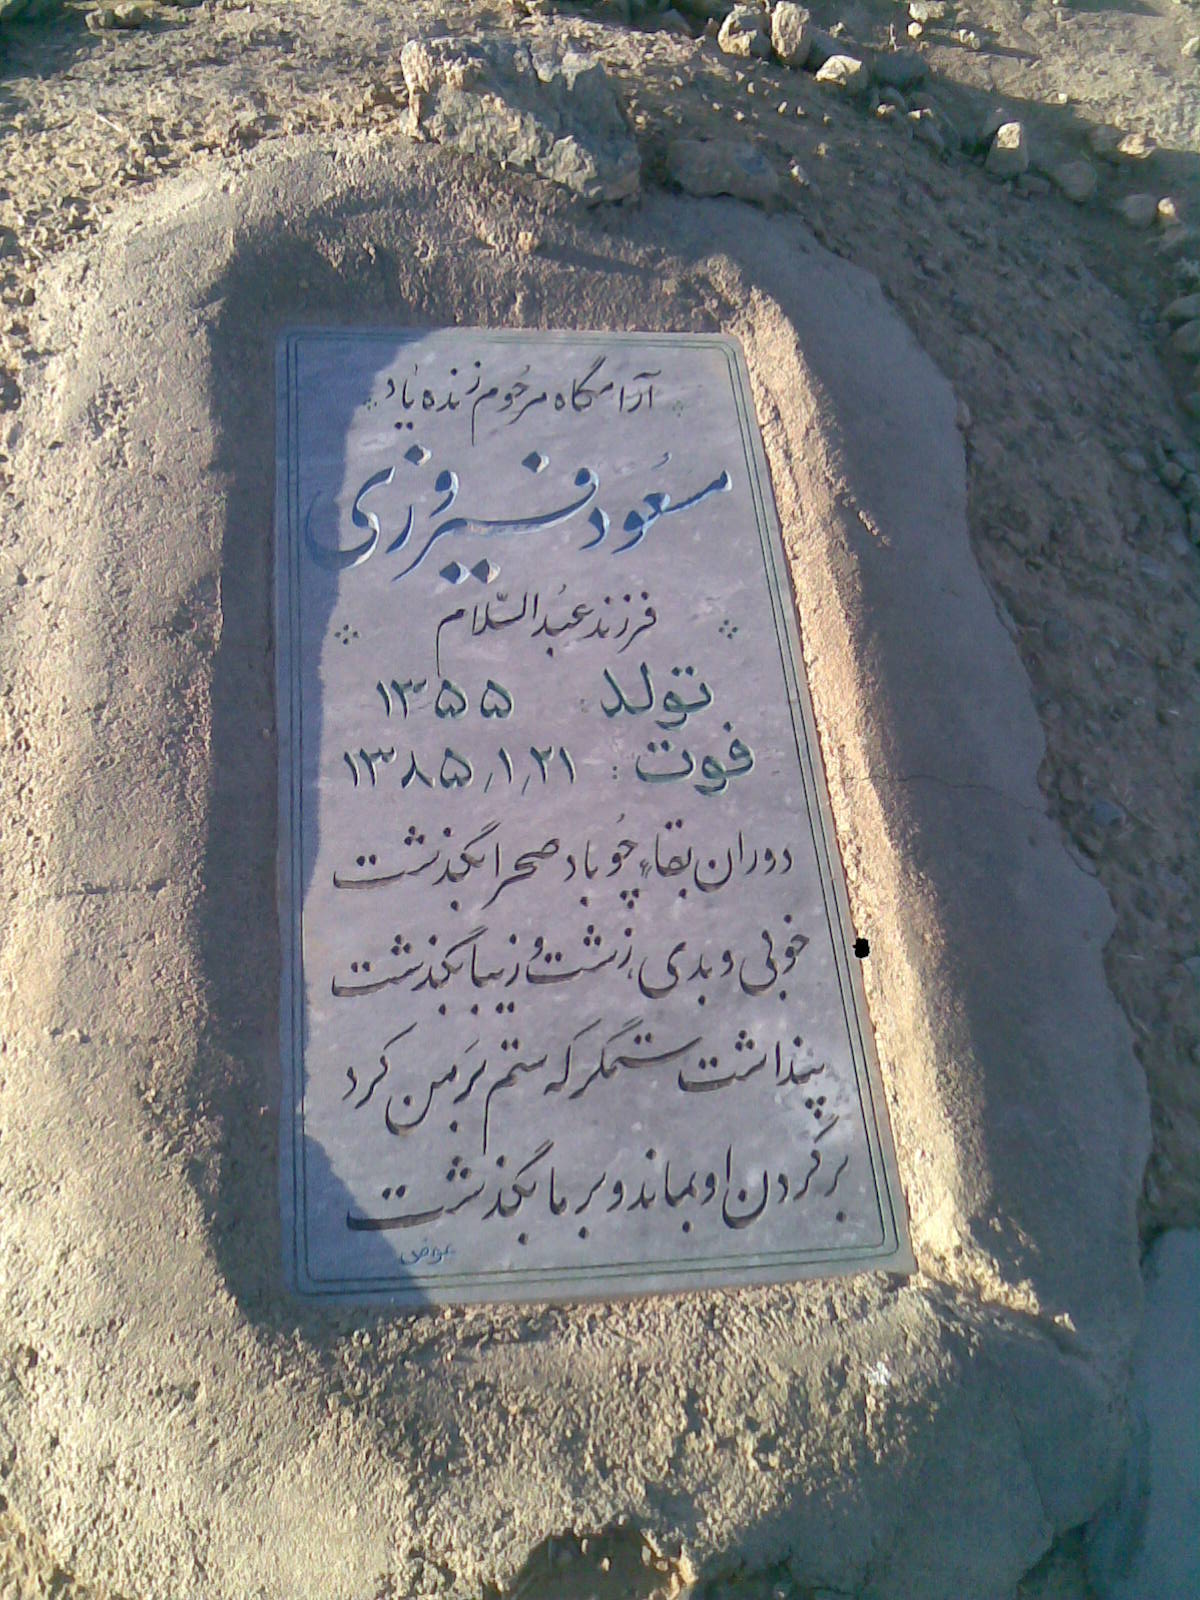 آرامگاه مرحوم زنده یاد
مسعود فیروزی
فرزند عبدالسّلام
تولد: ۱۳۵۵
فوت: ۱۳۸۵٫۱٫۲۱
دوران بقاء چو باد صحرا بگذشت
خوبی و بدی، زشت و زیبا بگذشت
پنداشت ستمگر که ستم بَر من کرد
بر گردن او بماند و بر ما بگذشت
عوض